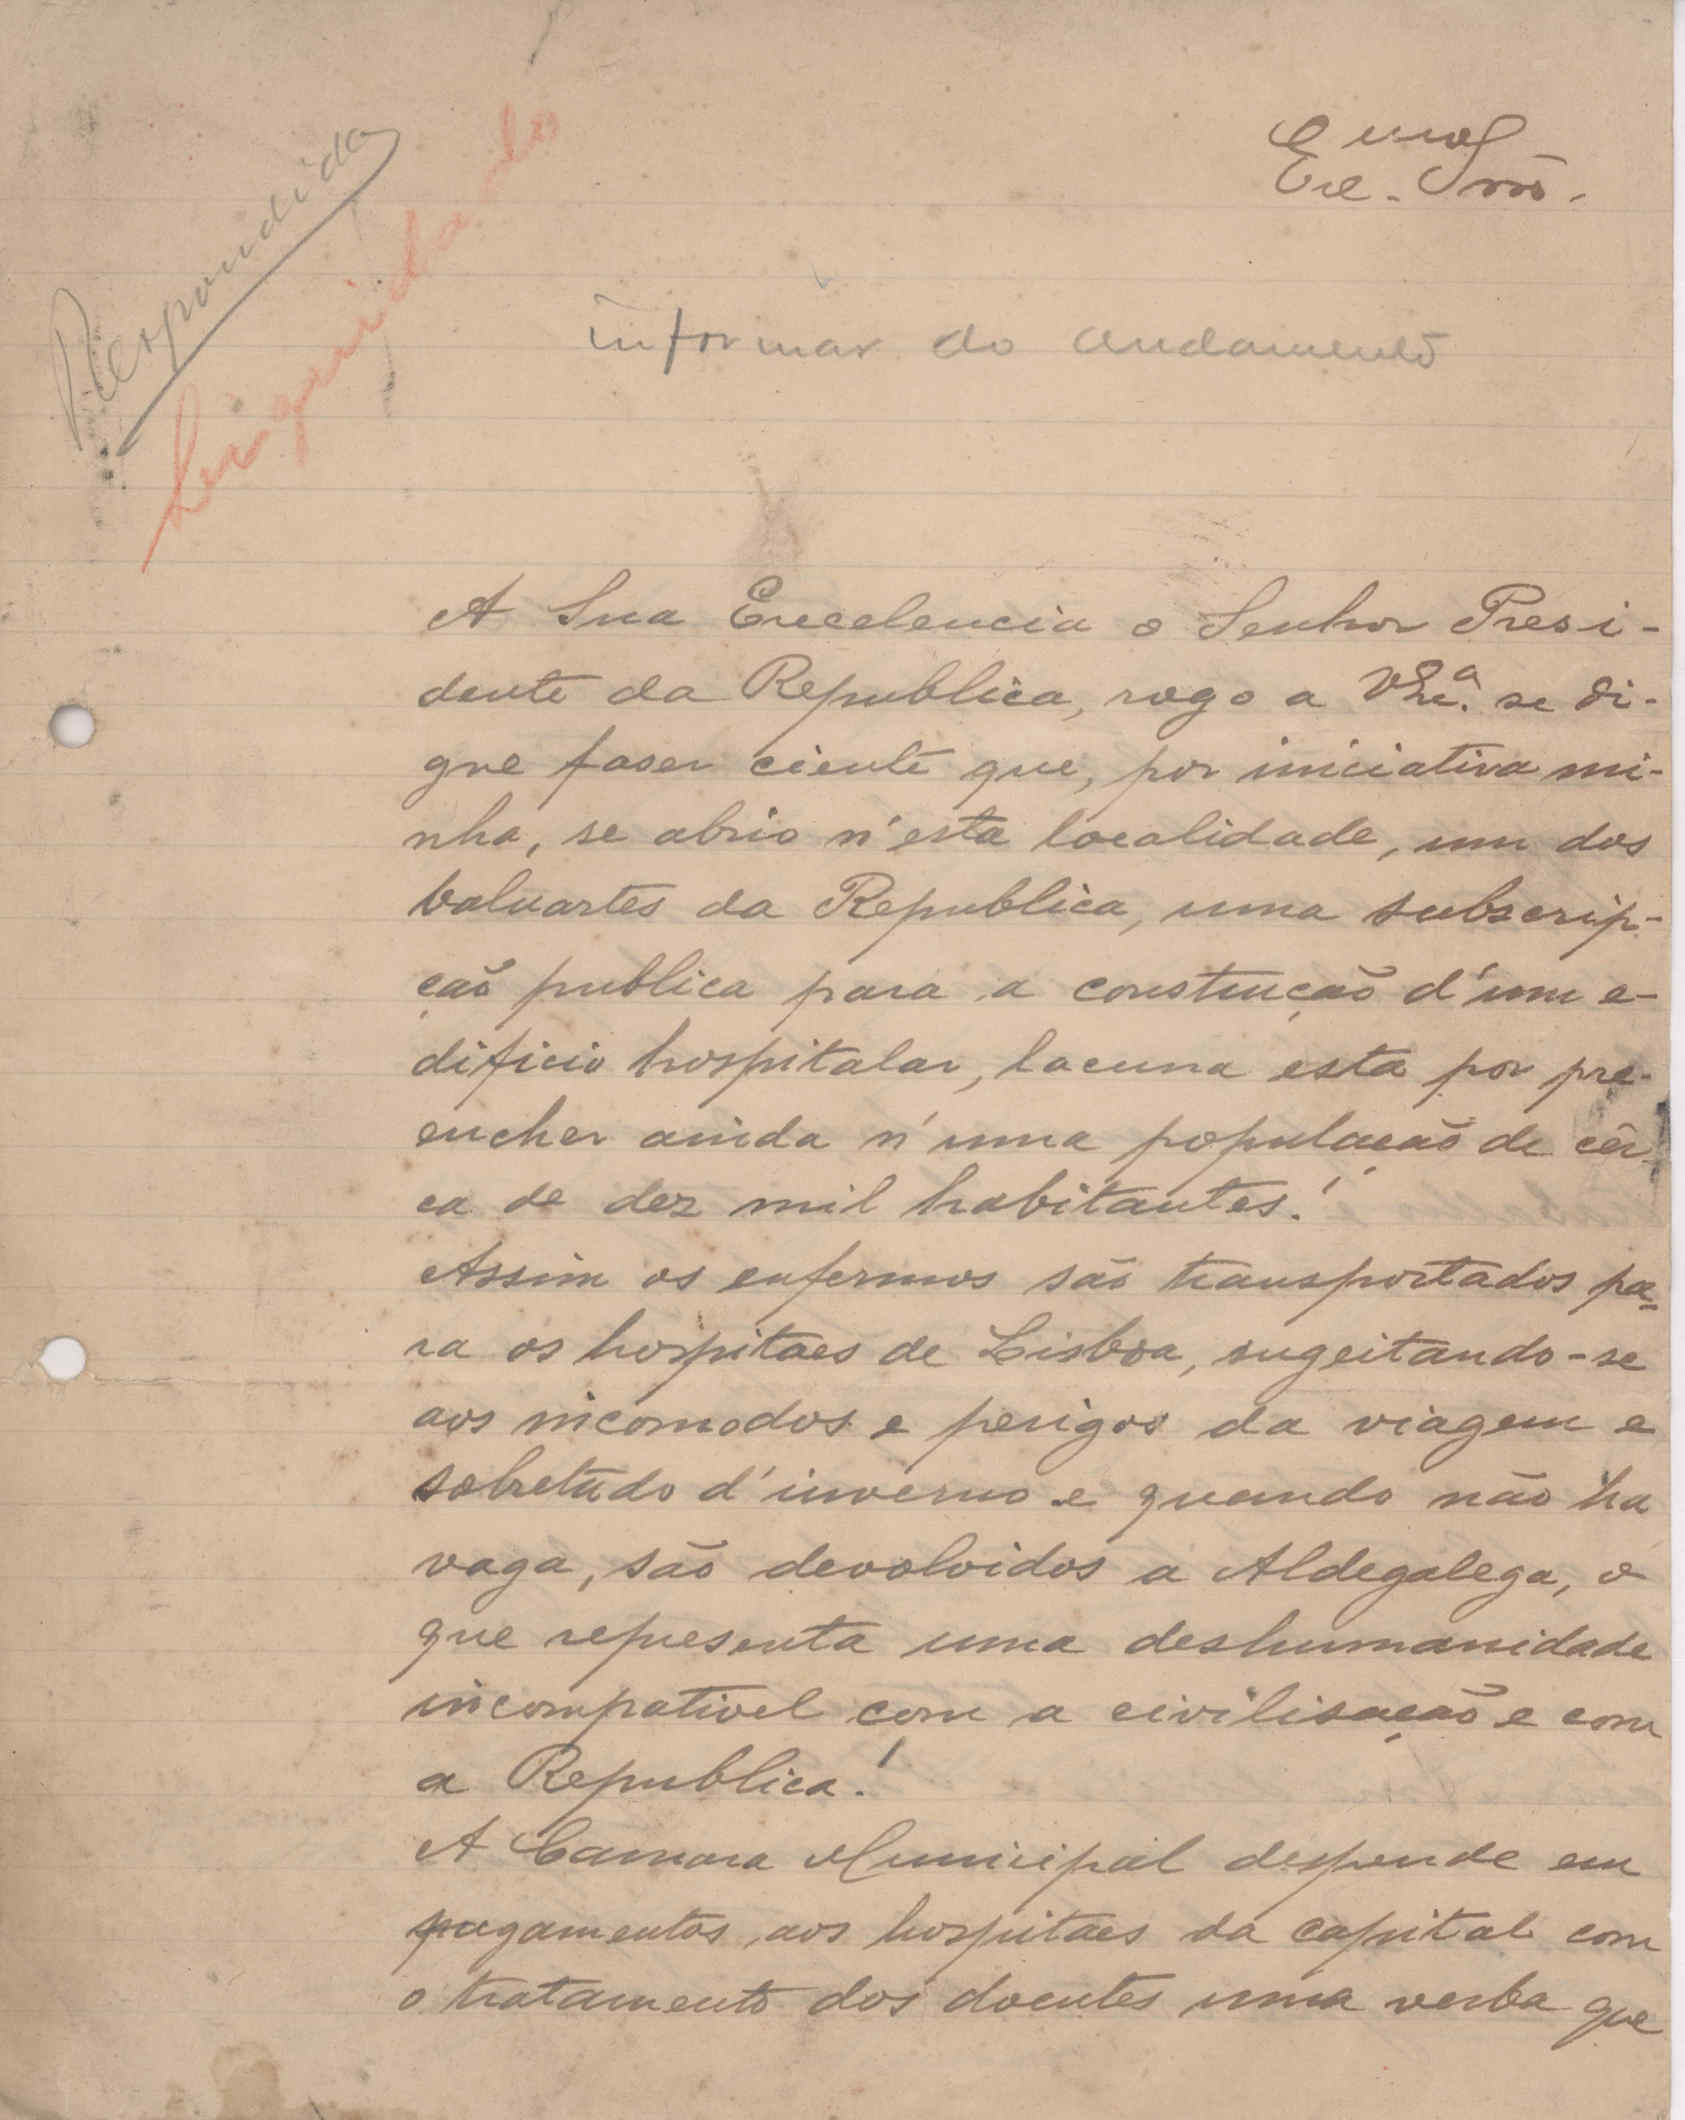 Exmo Snr.
Respondida
Liquidado
informar do andamento
A Sua Excelencia o Senhor Presi-
dente da Republica, rogo a VExa. se di-
gne faser ciente que, por iniciativa mi-
nha, se abrio n'esta localidade, um dos
baluartes da Republica, uma subscrip-
ção publica para a construção d'um e-
dificio hospitalar, lacuna esta por pre-
encher ainda n'uma população de cêr
ca de dez mil habitantes!
Assim os enfermos são transportados pa-
ra os hospitaes de Lisboa, sugeitando-se
aos incomodos e perigos da viagem e
sobretudo d'inverno e quando não ha
vaga, são devolvidos a Aldegalega, o
que representa uma deshumanidade
incompativel com a civilisação e com
a Republica!
A Camara Municipal despende em
pagamentos aos hospitaes da capital com
o tratamento dos doentes uma verba que